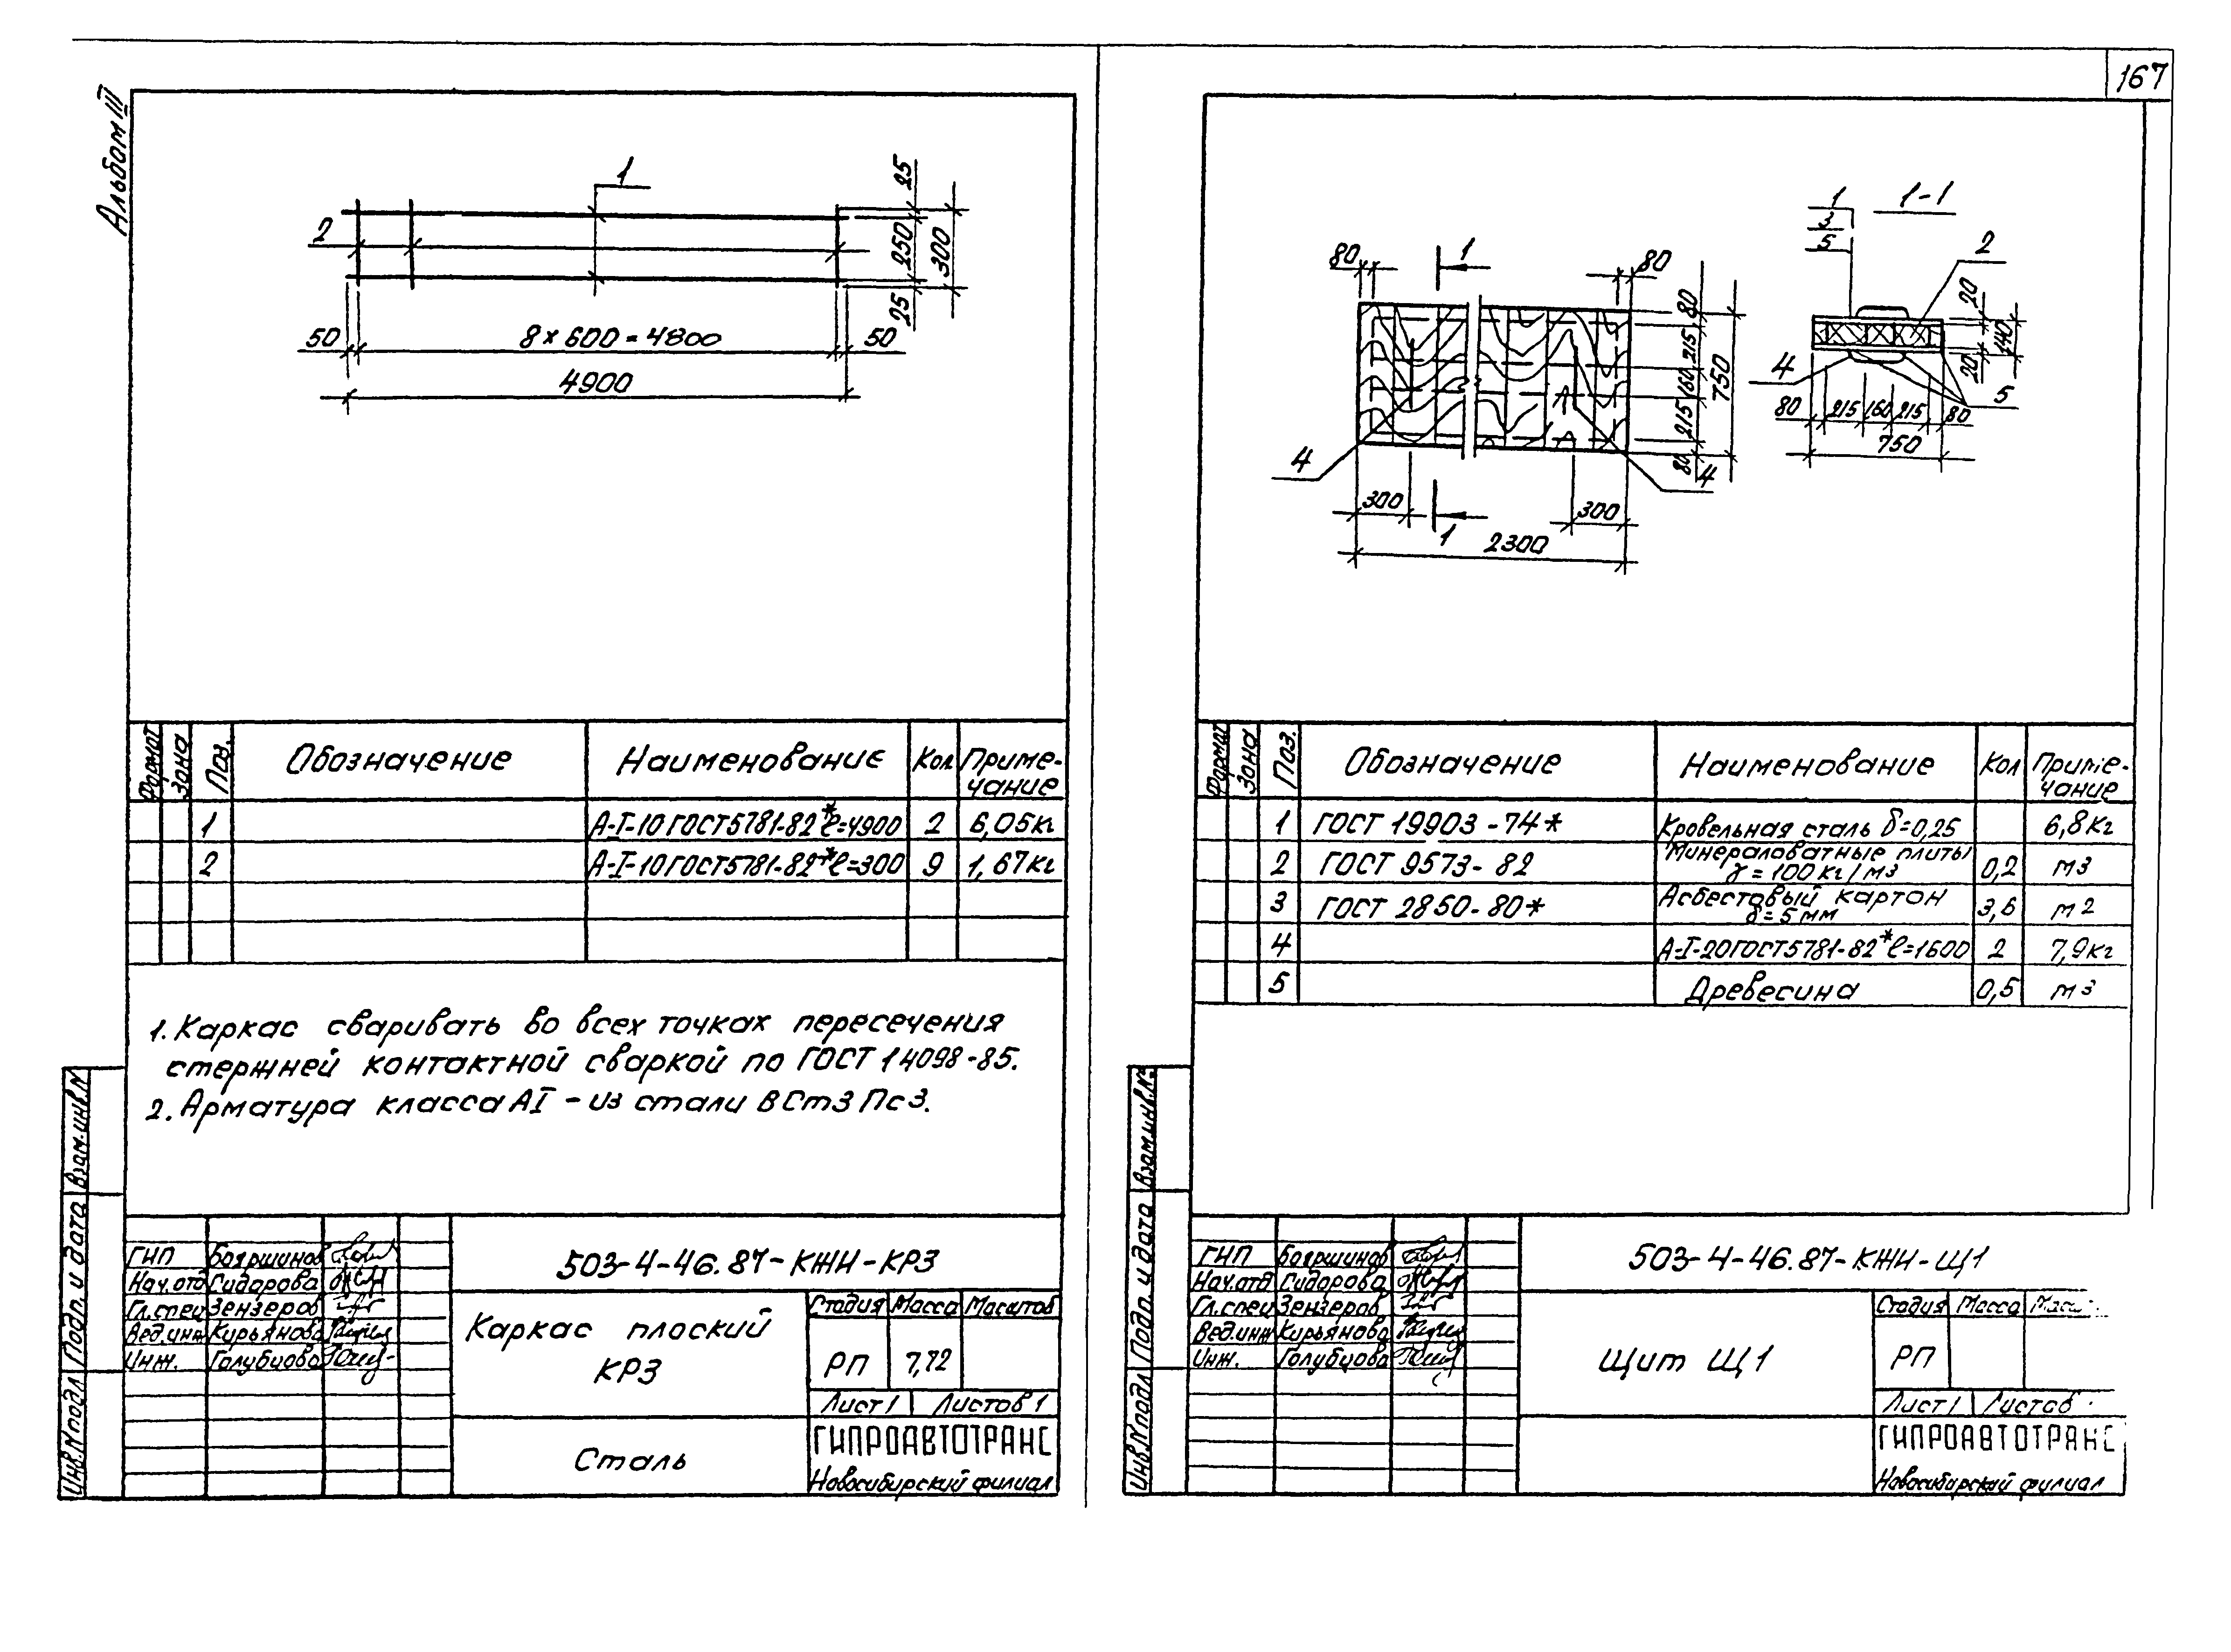 167
Альбом III
1
2
25
250
25
300
50
8×600=4800
50
4900
Формат Зона Поз. Обозначение Наименование Кол Приме-
чание
1 А-I-10 ГОСТ5781-82* ℓ=4900 2 6,05кг
2 А-I-10 ГОСТ5781-82* ℓ=300 9 1,67кг
1. Каркас сваривать во всех точках пересечения
стержней контактной сваркой по ГОСТ 14098-85.
2. Арматура класса АI - из стали ВСт3Пс3.
Взам.инв.N
Подп. и дата
Инв.Nподл
503-4-46.87-КЖИ-КР3
ГИП Бояршинов
Нач.отд Сидорова
Гл.спец Зензеров
Вед.инж Кирьянова
Инж. Голубцова
Каркас плоский
КР3
Стадия Масса Масштаб
РП 7,72
Лист 1 Листов 1
Сталь
ГИПРОАВТОТРАНС
Новосибирский филиал
1-1
1
3
5
2
80
1
80
80
215
160
215
80
750
4
4
300
1
300
2300
20
140
20
4
5
80 215 160 215 80
750
Формат Зона Поз. Обозначение Наименование Кол Приме-
чание
1 ГОСТ 19903-74* Кровельная сталь δ=0,25 6,8кг
2 ГОСТ 9573-82 Минераловатные плиты
γ=100кг/м3 0,2 м3
3 ГОСТ 2850-80* Асбестовый картон
δ=5мм 3,6 м2
4 А-I-20 ГОСТ5781-82* ℓ=1600 2 7,9кг
5 Древесина 0,5 м3
Взам.инв.N
Подп. и дата
Инв.Nподл
503-4-46.87-КЖИ-Щ1
ГИП Бояршинов
Нач.отд Сидорова
Гл.спец Зензеров
Вед.инж Кирьянова
Инж. Голубцова
Щит Щ1
Стадия Масса
РП
Лист 1 Листов
ГИПРОАВТОТРАНС
Новосибирский филиал